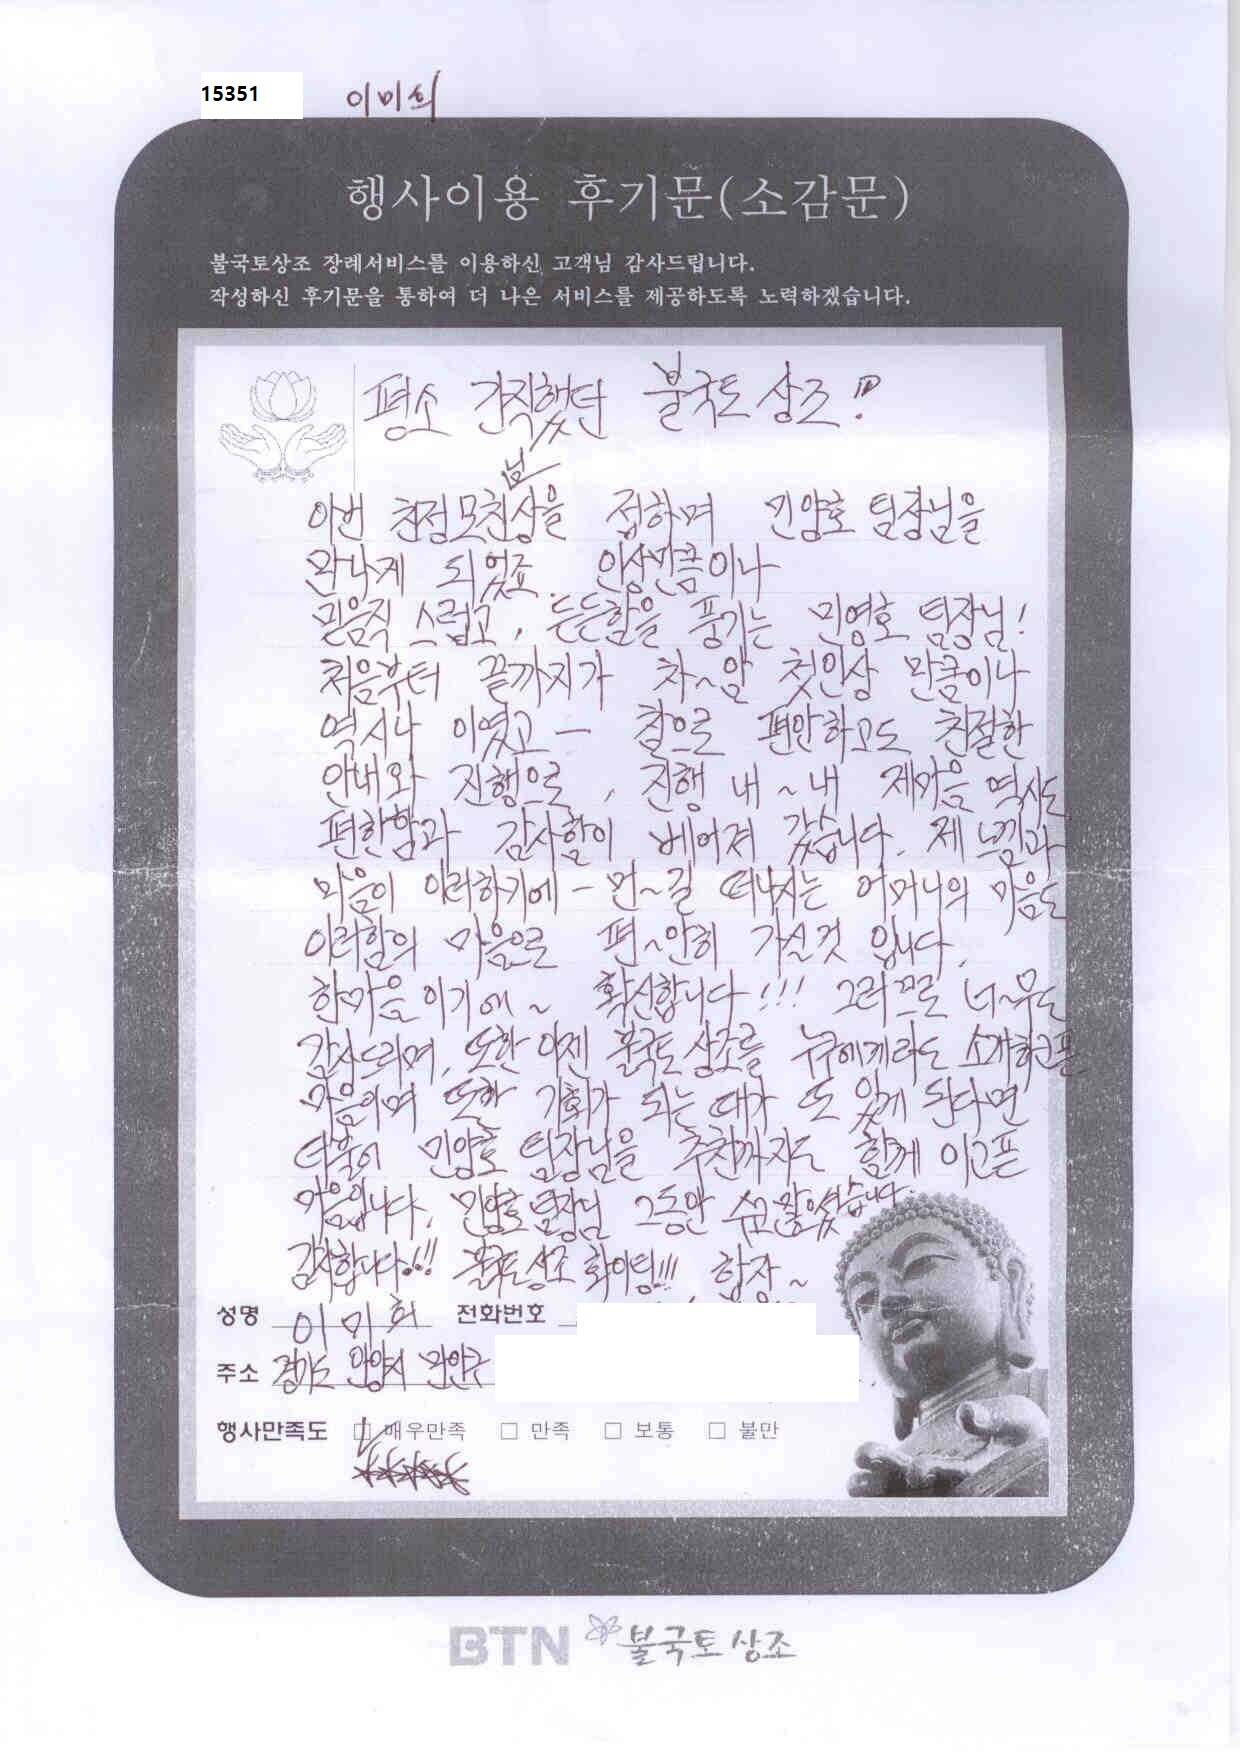 15351 이미희
행사이용 후기문(소감문)
불국토상조 장례서비스를 이용하신 고객님 감사드립니다.
작성하신 후기문을 통하여 더 나은 서비스를 제공하도록 노력하겠습니다.
평소 간직했던 불국토 상조!
님
이번 친정모친상을 접하며 민양호 팀장님을
만나게 되었죠. 인상만큼이나
믿음직 스럽고, 든든함을 풍기는 민영호 팀장님!
처음부터 끝까지가 차~암 첫인상 만큼이나
역시나 이였고 - 참으로 편안하고도 친절한
안내와 진행으로, 진행 내~내 제마음 역시도
편안함과 감사함이 베어져 갔습니다. 제 느낌과
마음이 이러하기에 - 먼~길 떠나시는 어머니의 마음도
이러함의 마음으로 편~안히 가신것 입니다.
한마음이기에~ 확신합니다!!! 그러므로 너~무도
감사드리며, 또한 이젠 불국토 상조를 누구에게라도 소개하고픈
마음이며 또한 기회가 되는 때가 또 있게 된다면
더불어 민양호 팀장님을 추천까지도 함께 이고픈
마음입니다. 민양호 팀장님 그동안 수고 많으셨습니다.
감사합니다!!! 불국토상조 화이팅!!! 합장~
성명 이미희 전화번호
주소 경기도 안양시 만안구
행사만족도 □ 매우만족 □ 만족 □ 보통 □ 불만
BTN 불국토상조